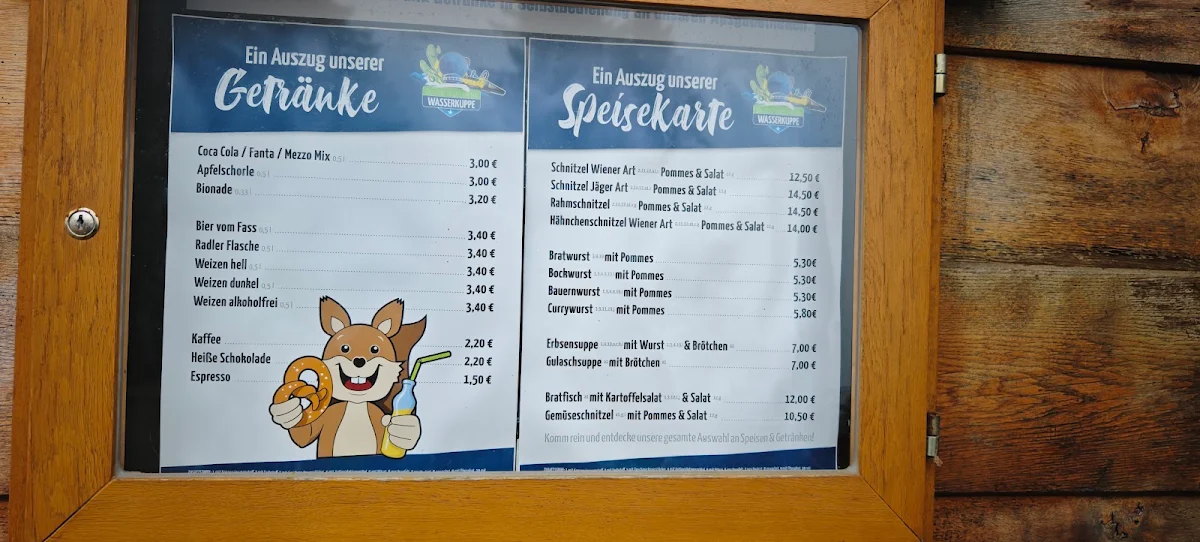 Ein Auszug unserer
Getränke
WASSERKUPPE
Coca Cola / Fanta / Mezzo Mix 0,5 l 3,00 €
Apfelschorle 0,5 l 3,00 €
Bionade 0,33 l 3,20 €
Bier vom Fass 0,5 l 3,40 €
Radler Flasche 0,5 l 3,40 €
Weizen hell 0,5 l 3,40 €
Weizen dunkel 0,5 l 3,40 €
Weizen alkoholfrei 0,5 l 3,40 €
Kaffee 2,20 €
Heiße Schokolade 2,20 €
Espresso 1,50 €
Ein Auszug unserer
Speisekarte
WASSERKUPPE
Schnitzel Wiener Art Pommes & Salat 12,50 €
Schnitzel Jäger Art Pommes & Salat 14,50 €
Rahmschnitzel Pommes & Salat 14,50 €
Hähnchenschnitzel Wiener Art Pommes & Salat 14,00 €
Bratwurst mit Pommes 5,30€
Bockwurst mit Pommes 5,30€
Bauernwurst mit Pommes 5,30€
Currywurst mit Pommes 5,80€
Erbsensuppe mit Wurst & Brötchen 7,00 €
Gulaschsuppe mit Brötchen 7,00 €
Bratfisch mit Kartoffelsalat & Salat 12,00 €
Gemüseschnitzel mit Pommes & Salat 10,50 €
Komm rein und entdecke unsere gesamte Auswahl an Speisen & Getränken!